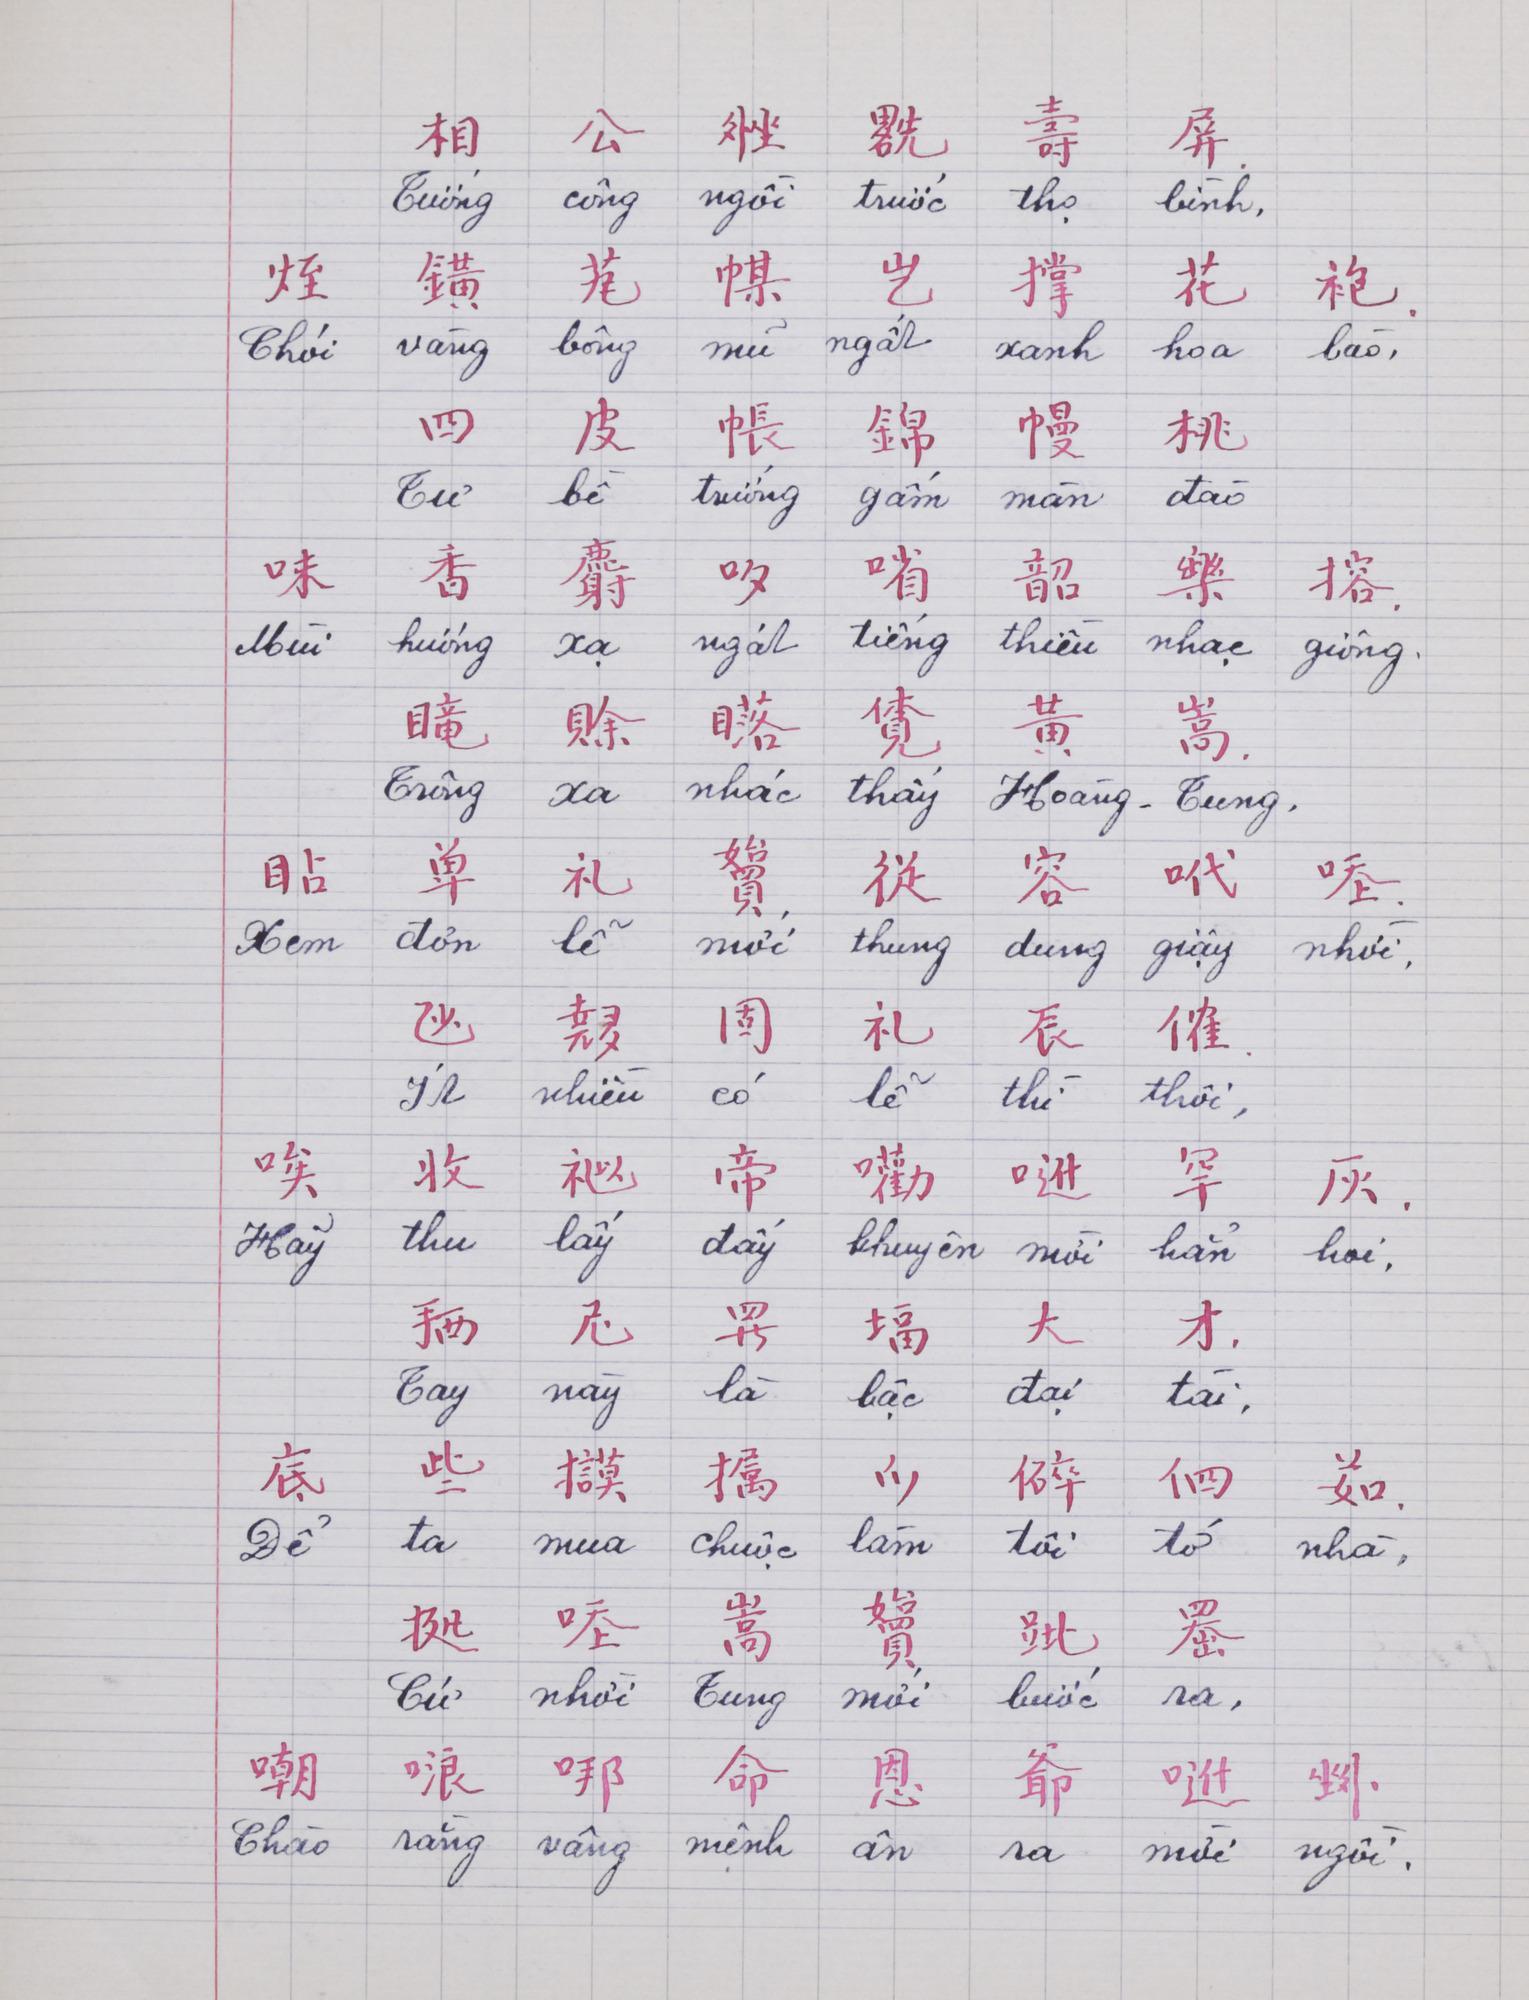 相 公 𡉦 𠓀 壽 屏.
Tướng công ngồi trước thọ bình,
烃 鐄 芼 帽 岂 撑 花 袍.
Chói vàng bông mũ ngất xanh hoa bào,
四 皮 帳 錦 幔 桃
Tư bề trướng gấm màn đào
味 香 麝 㕰 㗂 韶 樂 搈.
Mùi hương xạ ngát tiếng thiều nhạc giông.
瞳 賒 𥌧 𧡊 黃 嵩.
Trông xa nhác thấy Hoàng-Tung,
䀡 单 礼 𫤾 從 容 𠰺 𠰃.
Xem đơn lễ mới thung dung giậy nhời,
𠃣 𡗉 固 礼 辰 催.
Ít nhiều có lễ thì thôi,
唉 收 𥙩 帝 嚾 𠶆 罕 灰.
Hãy thu lấy đấy khuyên mời hẳn hoi,
𢬣 尼 𱺵 堛 大 才.
Tay này là bậc đại tài,
底 些 𢱖 㩫 𫜵 碎 伵 茹.
Để ta mua chuộc làm tôi tớ nhà,
拠 𠰃 嵩 𫤾 𨀈 𦋦
Cứ nhời Tung mới bước ra,
嘲 哴 𠳐 命 恩 爺 𠶆 𡉦.
Chào rằng vâng mệnh ân ra mời ngồi.